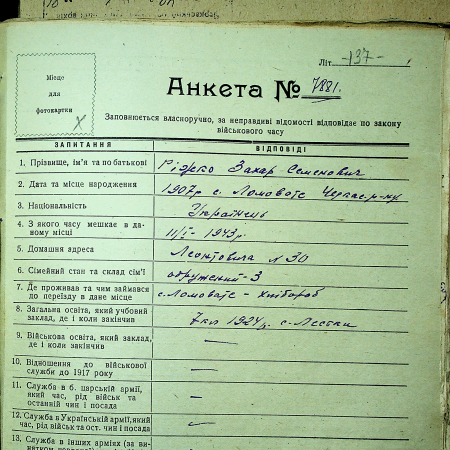 Літ. -137-
Місце
для
фотокартки
Анкета № 7881.
Заповнюється власноручно, за неправдиві відомості відповідає по закону
військового часу
ЗАПИТАННЯ ВІДПОВІДІ
1. Прізвище, ім'я та по батькові Захар Семенович
2. Дата та місце народження 1907 р с. Ломоватє Черкас. р-ну
3. Національність Українець
4. З якого часу мешкає в да-
ному місці 11/I - 1943 р.
5. Домашня адреса Леонтовича № 30
6. Сімейний стан та склад сім'ї одружений - 3
7. Де проживав та чим займався
до переїзду в дане місце с. Ломоватє - хлібороб
8. Загальна освіта, який учбовий
заклад, де і коли закінчив 7 кл 1924 р. с. Леськи
9. Військова освіта, який заклад,
де і коли закінчив —
10. Відношення до військової
служби до 1917 року —
11. Служба в б. царській армії,
який час, рід військ та
останній чин і посада —
12. Служба в Українській армії, який
час, рід військ та ост. чин і посада —
13. Служба в інших арміях (за ви-